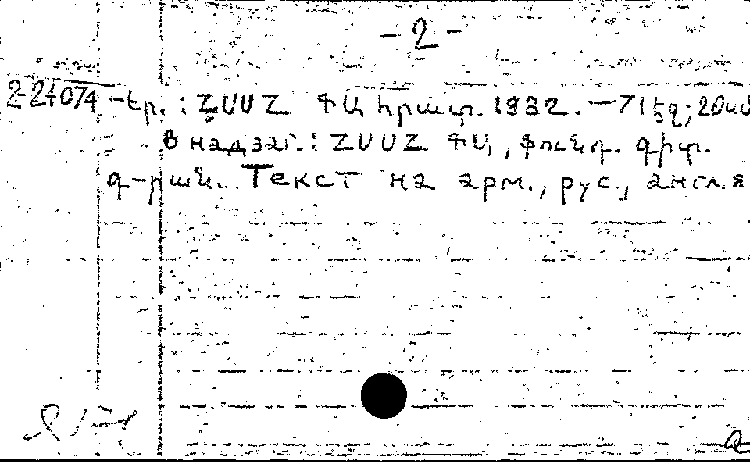 - 2 -
2-24074 -Եր.: ՀՍՍՀ ԳԱ հրատ. 1982. —71էջ; 20սմ
В надзаг.: ՀՍՍՀ ԳԱ, ֆունդ. գիտ.
գ-րան. Текст на арм., рус., англ.я